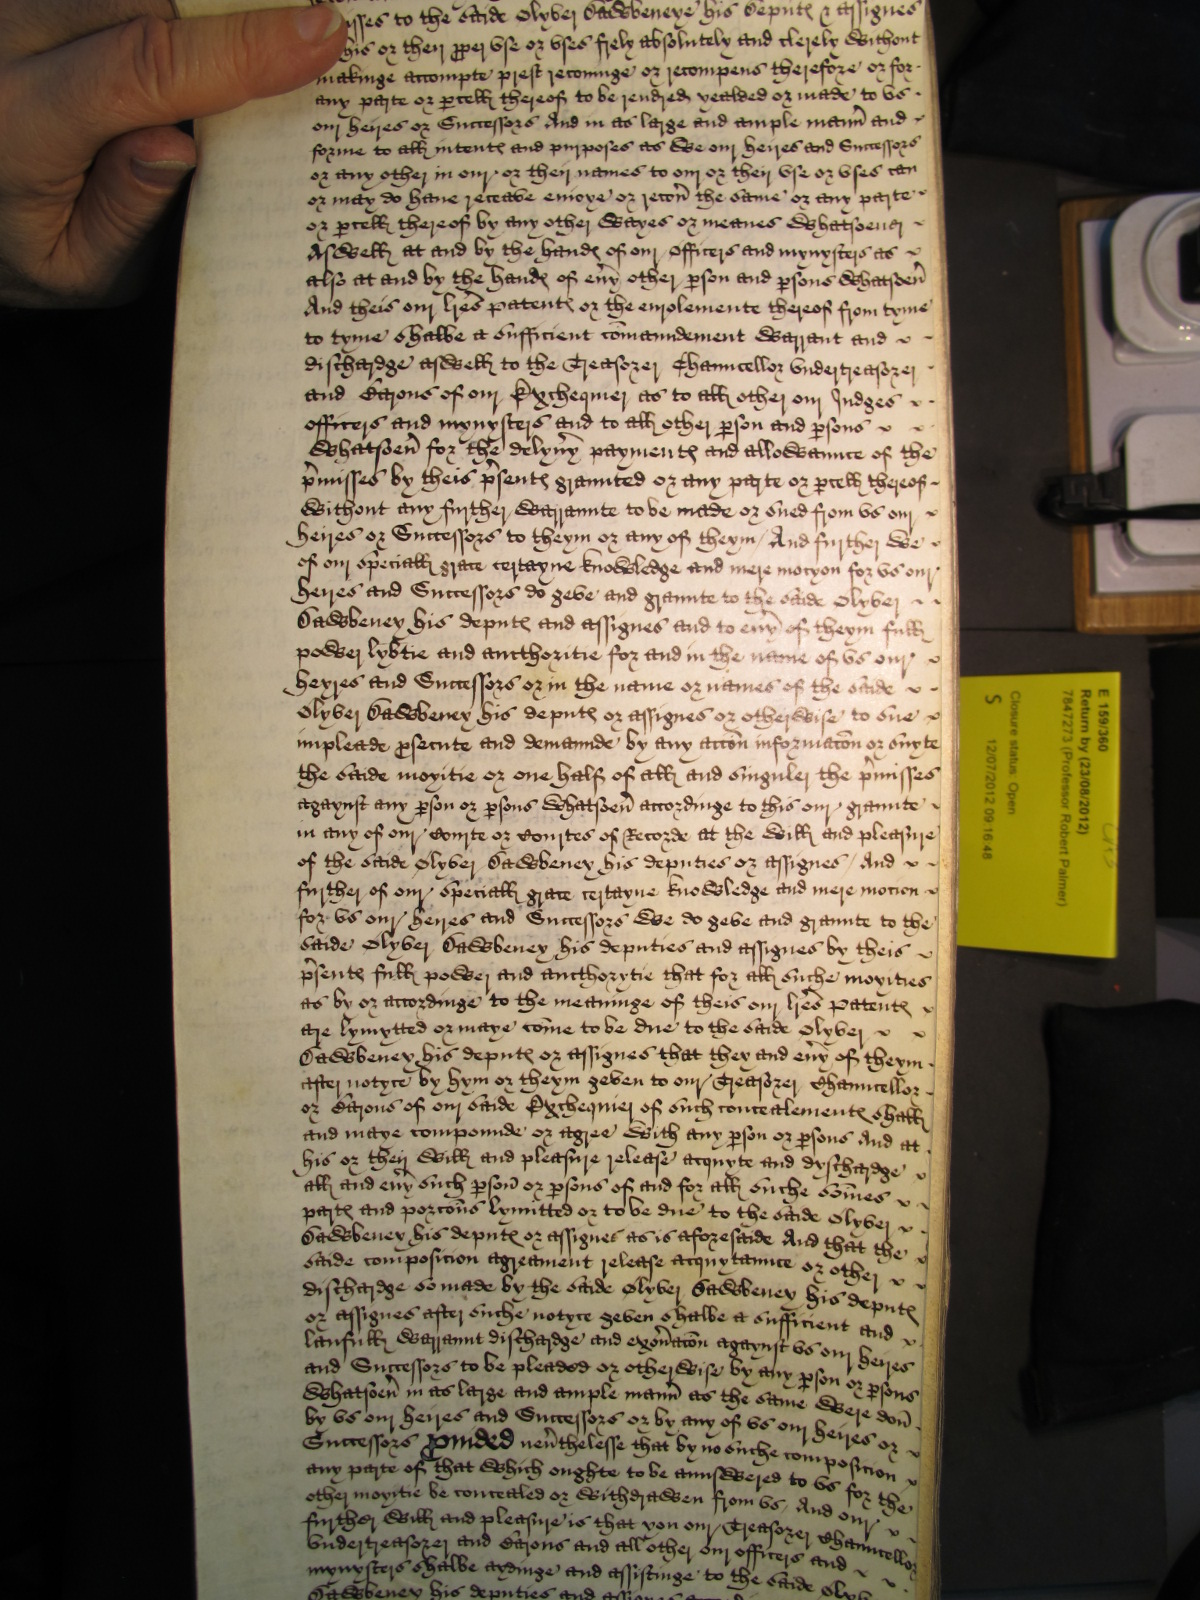 to the saide Olyver Dawbeney his deput(es) & assignes
his or their p(ro)per vse or vses frely absolutely and clerely without
makinge accompte prest reconinge or recompens therefore or for
any parte or p(ar)cell thereof to be rendred yealded or made to vs
our heires or Successors And in as large and ample mann(er) and
forme to all intent(es) and purposes as we our heires and Successors
or any other in our or their names to our or their vse or vses can
or may do have receave enioye or recou(er) the same or any parte
or p(ar)cell thereof by any other wayes or meanes whatsoeuer
Aswell at and by the hand(es) of our officers and mynysters as
also at and by the hand(es) of eu(er)y other p(er)son and p(er)sons whatsoeu(er)
And theis our l(ett)res patent(es) or the enrolemente thereof from tyme
to tyme shalbe a sufficient com(m)aundement warrant and
dischardge aswell to the Treasorer Chauncellor vndertreasorer
and Barons of our Exchequier as to all other our Judges
officers and mynysters and to all other p(er)son and p(er)sons
whatsoeu(er) for the delyu(er)y payment(es) and allowaunce of the
p(re)misses by theis p(re)sent(es) graunted or any parte or p(ar)cell thereof
without any further warraunte to be made or sued from vs our
heires or Successors to theym or any of theym / And further we
of our sp(ec)iall grace certayne knowledge and mere mocyon for vs our
heires and Successors do geve and graunte to the saide Olyver
Dawbeney his deput(es) and assignes and to eu(er)y of theym full
power lyb(er)tie and aucthoritie for and in the name of vs our
heyres and Successors or in the name or names of the saide
Olyver Dawbeney his deput(es) or assignes or otherwise to sue
impleade p(ro)secute and demaunde by any acc(i)on informac(i)on or suyte
the saide moyitie or one half of all and singuler the p(re)misses
agaynst any p(er)son or p(er)sons whatsoeu(er) accordinge to this our graunte
in any of our Courte or Courtes of Recorde at the will and pleasure
of the saide Olyver Dawbeney his deputies or assignes / And
further of our speciall grace certayne knowledge and mere motion
for vs our heires and Successors we do geve and graunte to the
saide Olyver Dawbeney his deputies and assignes by theis
p(re)sent(es) full power and aucthorytie that for all suche moyities
as by or accordinge to the meaninge of theis our l(ett)res Patent(es)
are lymytted or maye come to be due to the saide Olyver
Dawbeney his deput(es) or assignes that they and eu(er)y of theym
after notyce by hym or theym geven to our Treasorer Chauncellor
or Barons of our saide Exchequier of such concealement(es) shall
and maye compounde or agree with any p(er)son or p(er)sons And at
his or their will and pleasure release acquyte and dyschardge
all and eu(er)y such p(er)son or p(er)sons of and for all suche som(m)es
part(es) and porc(i)ons lymitted or to be due to the saide Olyver
Dawbeney his deput(es) or assignes as is aforesaide And that the
saide composition agreament release acquytaunce or other
dischardge so made by the saide Olyver Dawbeney his deput(es)
or assignes after suche notyce geven shalbe a sufficient and
laufull warraunt dischardge and exon(er)ac(i)on agaynst vs our heires
and Successors to be pleaded or otherwise by any p(er)son or p(er)sons
whatsoeu(er) in as large and ample mann(er) as the same were don
by vs our heires and Successors or by any of vs our heires or
Successors p(ro)uided neu(er)thelesse that by no suche composition
any parte of that which oughte to be aunswered to vs for the
other moyitie be concealed or withdrawen from vs / And our
further will and pleasure is that you our Treasorer Chauncellor
vndertreasorer and Barons and all other our officers and
mynysters shalbe aydinge and assistinge to the saide
Dawbeney his deputies and
E 159/360
Return by (23/08/2012)
7847273 (Professor Robert Palmer)
Closure status: Open
S 12/07/2012 09:16:48